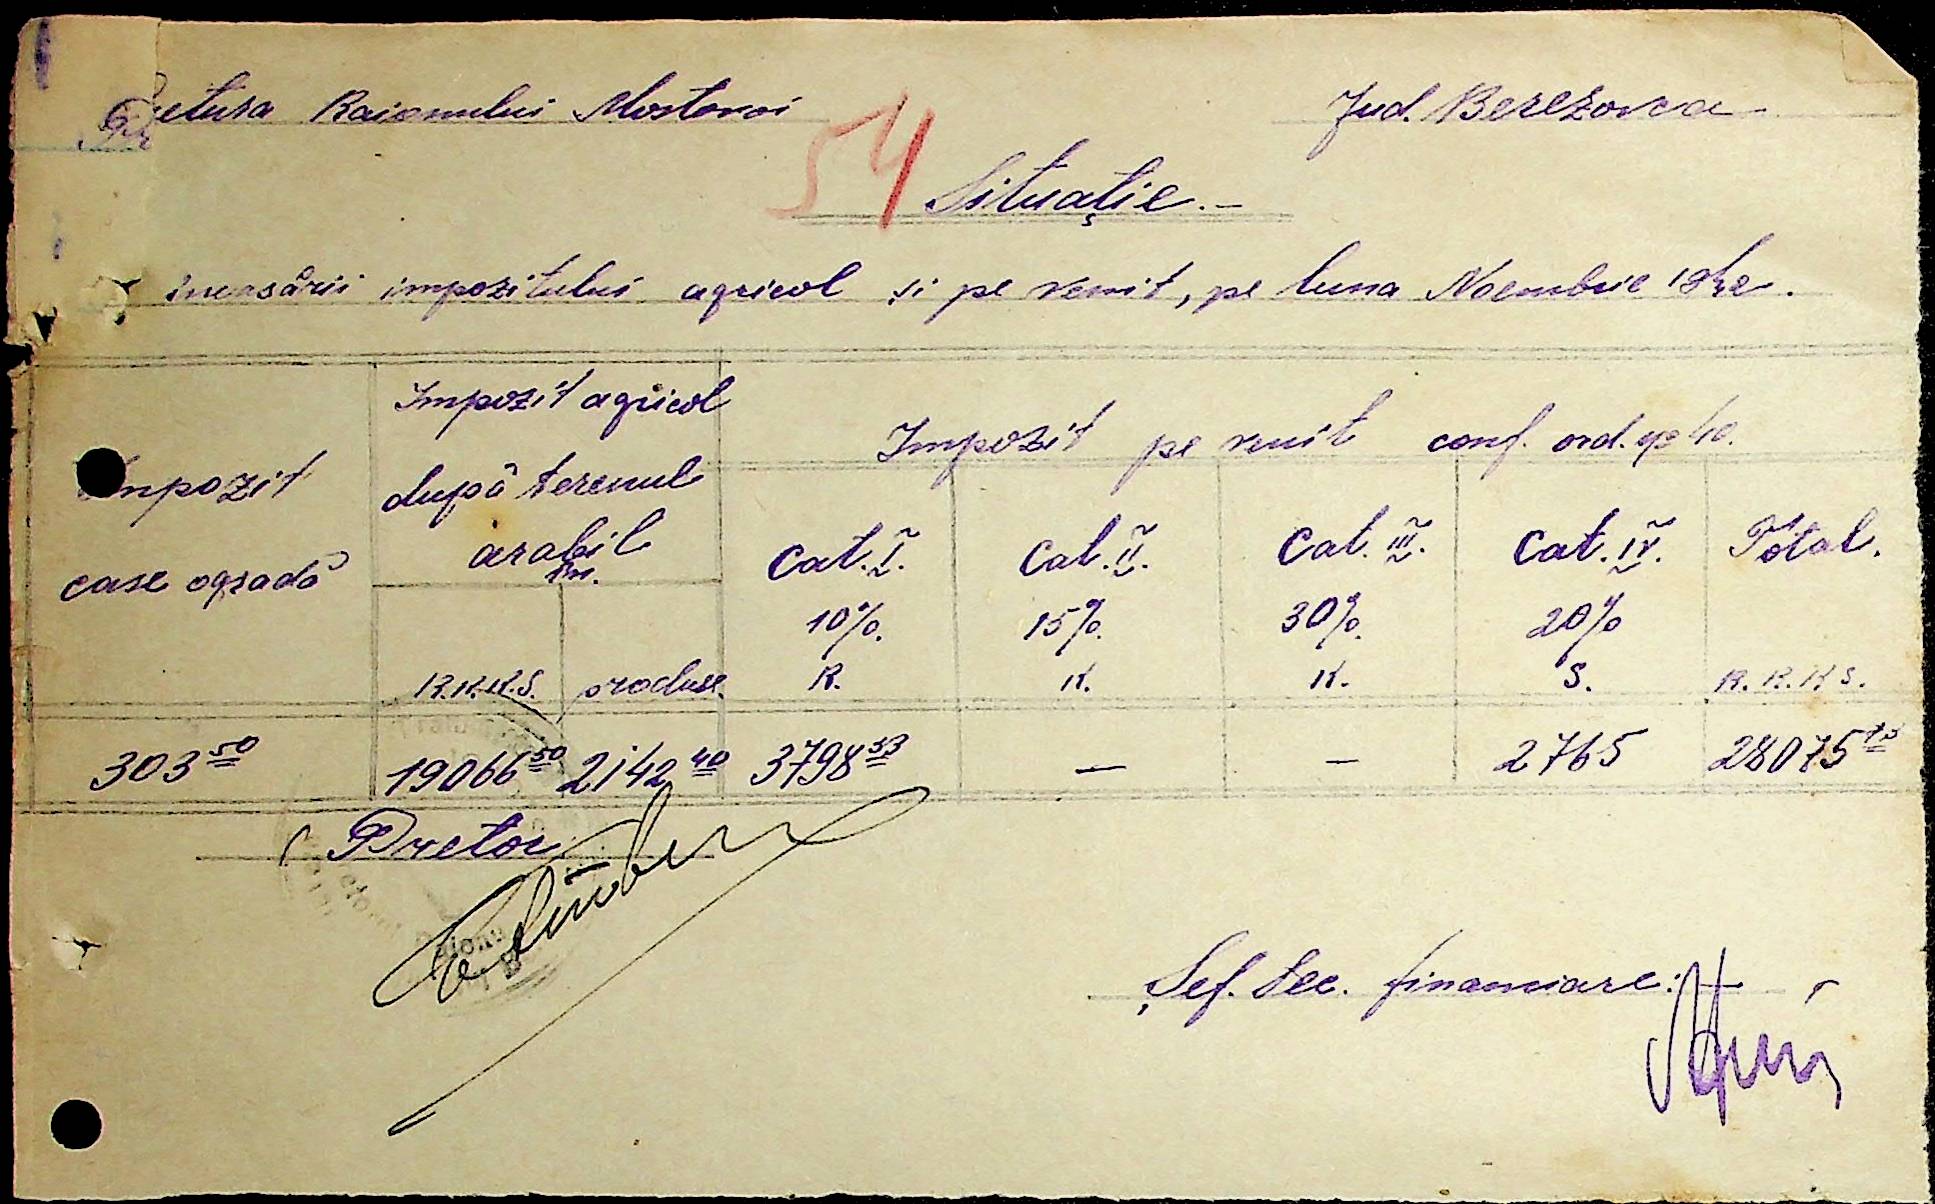 Pretura Raionului Mostovoi
Jud. Berezovca
54
Situaţie.-
încasării impozitului agricol şi pe venit, pe luna Noembrie 1942.
Impozit
case ogradă
Impozit agricol
după terenul
arabil
R.K.K.S.
produse.
Impozit pe venit conf. ord. 40.
Cat. I.
10%.
R.
Cat. II.
15%.
K.
Cat. III.
30%.
K.
Cat. IV.
20%
S.
Total.
R.R.K S.
303 50
19066 50
2142 40
3798 33
—
—
2765
28075
Pretor
Şef. Sec. financiare: